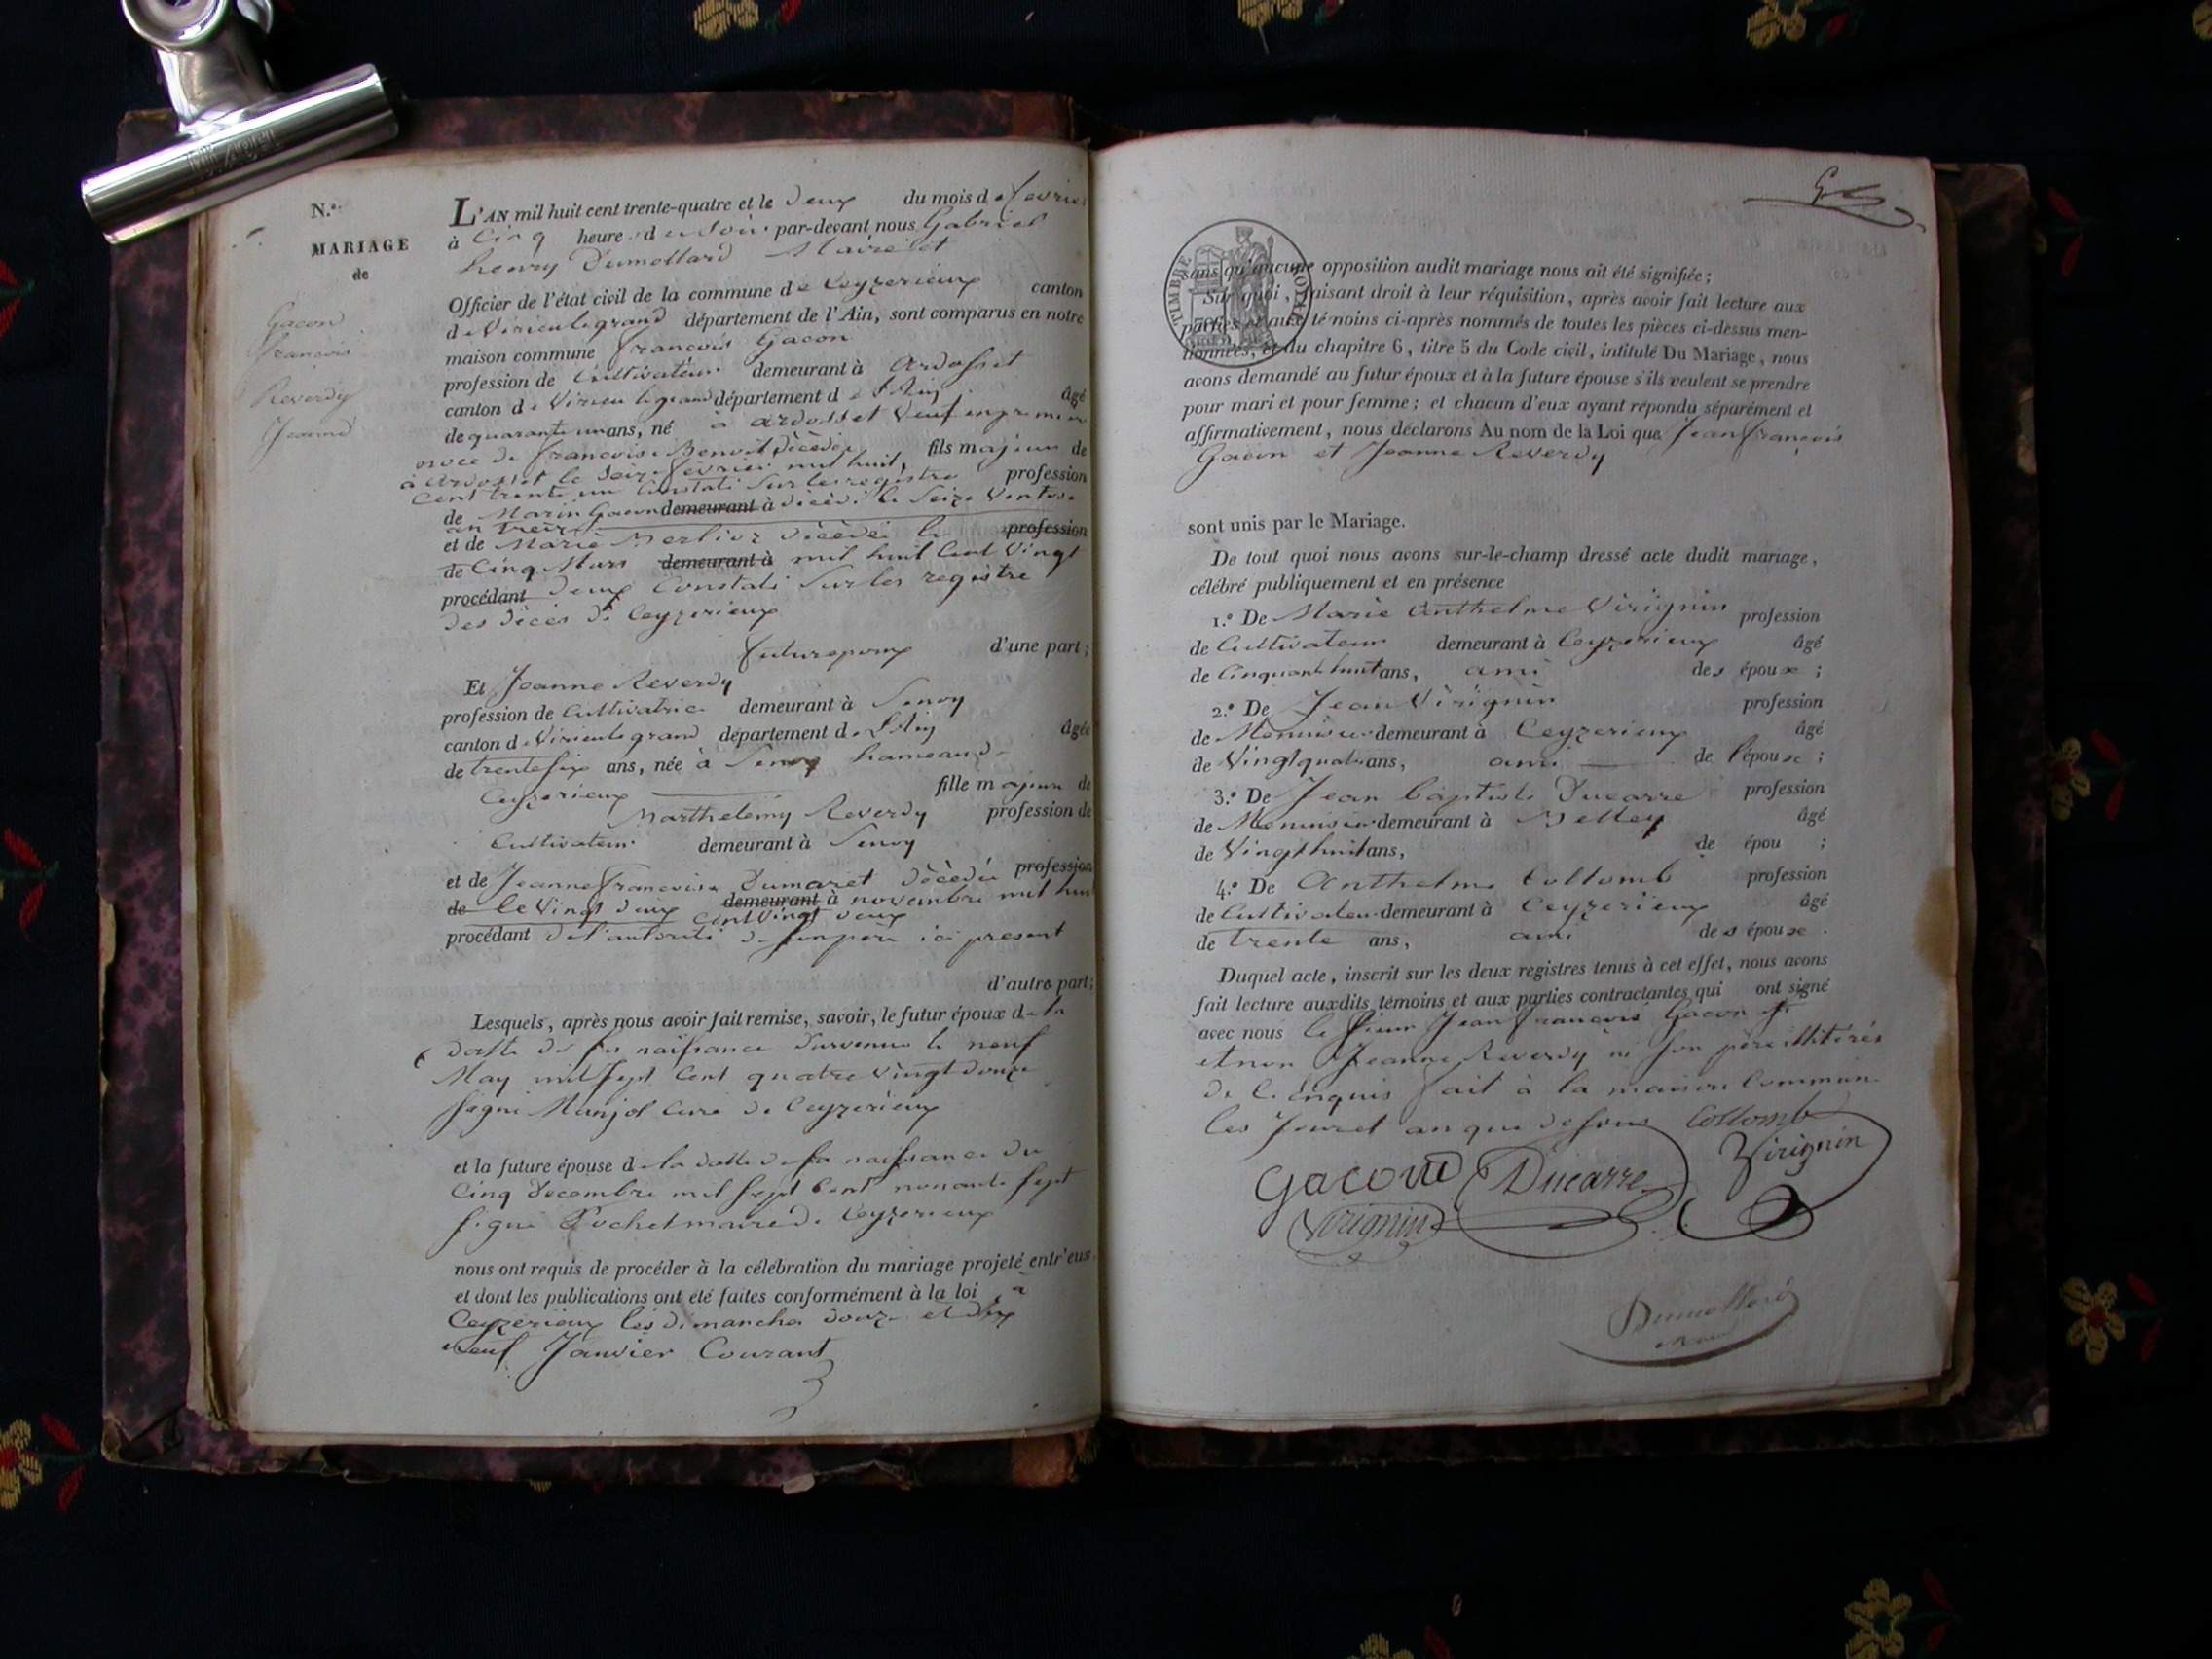 N.º
MARIAGE
de
Gacon
francois
Reverdy
Jeanne
L'AN mil huit cent trente-quatre et le deux du mois de fevrier
à Cinq heure du Soir par-devant nous Gabriel
henry Dumollard Maire et
Officier de l'état civil de la commune de Ceyzerieux canton
de Virieulegrand département de l'Ain, sont comparus en notre
maison commune francois Gacon
profession de Cultivateur demeurant à Ardosset
canton de Virieu legrand département de L'Ain âgé
de quarante un ans, né à ardosset Veuf en premier
de francoise Benoit décédée fils majeur de
à Ardosset le Seize fevrier mil huit profession
Cent trente un Constaté Sur les registre
de Marin Gacon demeurant à décédé le Seize Ventose
an Treize
et de Marie Merlioz décédée le profession
de Cinq Mars demeurant à mil huit Cent Vingt
procédant deux Constaté Sur les registre
des décès de Ceyzerieux
futur epoux d'une part;
Et Jeanne Reverdy
profession de Cultivatrice demeurant à Senoy
canton de Virieulegrand département de L'Ain âgée
de trente six ans, née à Senoy hameau de
Ceyzerieux fille majeure de
Marthelemy Reverdy profession de
Cultivateur demeurant à Senoy
et de Jeanne francoise Dumaret décédée profession
de le Vingt deux demeurant à novembre mil huit
Cent Vingt deux
procédant de l'autorité de son père ici present
d'autre part;
Lesquels, après nous avoir fait remise, savoir, le futur époux de la
datte de sa naissance survenue le neuf
May mil sept Cent quatre Vingt douze
signé Manjot Curé de Ceyzerieux
et la future épouse de la datte de sa naissance du
Cinq Decembre mil sept Cent nonante sept
signé Pochet maire de Ceyzerieux
nous ont requis de procéder à la célébration du mariage projeté entr'eux
et dont les publications ont été faites conformément à la loi à
Ceyzerieux les dimanches douze et dix
neuf Janvier Courant
TIMBRE ROYAL
sans qu'aucune opposition audit mariage nous ait été signifiée;
Sur quoi, faisant droit à leur réquisition, après avoir fait lecture aux
parties et aux témoins ci-après nommés de toutes les pièces ci-dessus men-
tionnées, et du chapitre 6, titre 5 du Code civil, intitulé Du Mariage, nous
avons demandé au futur époux et à la future épouse s'ils veulent se prendre
pour mari et pour femme; et chacun d'eux ayant répondu séparément et
affirmativement, nous déclarons Au nom de la Loi que Jean francois
Gacon et Jeanne Reverdy
sont unis par le Mariage.
De tout quoi nous avons sur-le-champ dressé acte dudit mariage,
célébré publiquement et en présence
1.º De Marie Anthelme Virignin profession
de Cultivateur demeurant à Ceyzerieux âgé
de Cinquante huit ans, ami des époux;
2.º De Jean Virignin profession
de Menuisier demeurant à Ceyzerieux âgé
de Vingt quatre ans, ami de l'épouse;
3.º De Jean Baptiste Ducarre profession
de Menuisier demeurant à Belley âgé
de Vingt huit ans, de épou ;
4.º De Anthelme Collomb profession
de Cultivateur demeurant à Ceyzerieux âgé
de trente ans, ami des épouse.
Duquel acte, inscrit sur les deux registres tenus à cet effet, nous avons
fait lecture auxdits témoins et aux parties contractantes qui ont signé
avec nous le sieur Jean francois Gacon
et non Jeanne Reverdy ni son père illitérés
de ce enquis fait à la maison Commune
les Jour et an que dessus Collomb
Virignin
Gacon Ducarre
Virignin
Dumollard